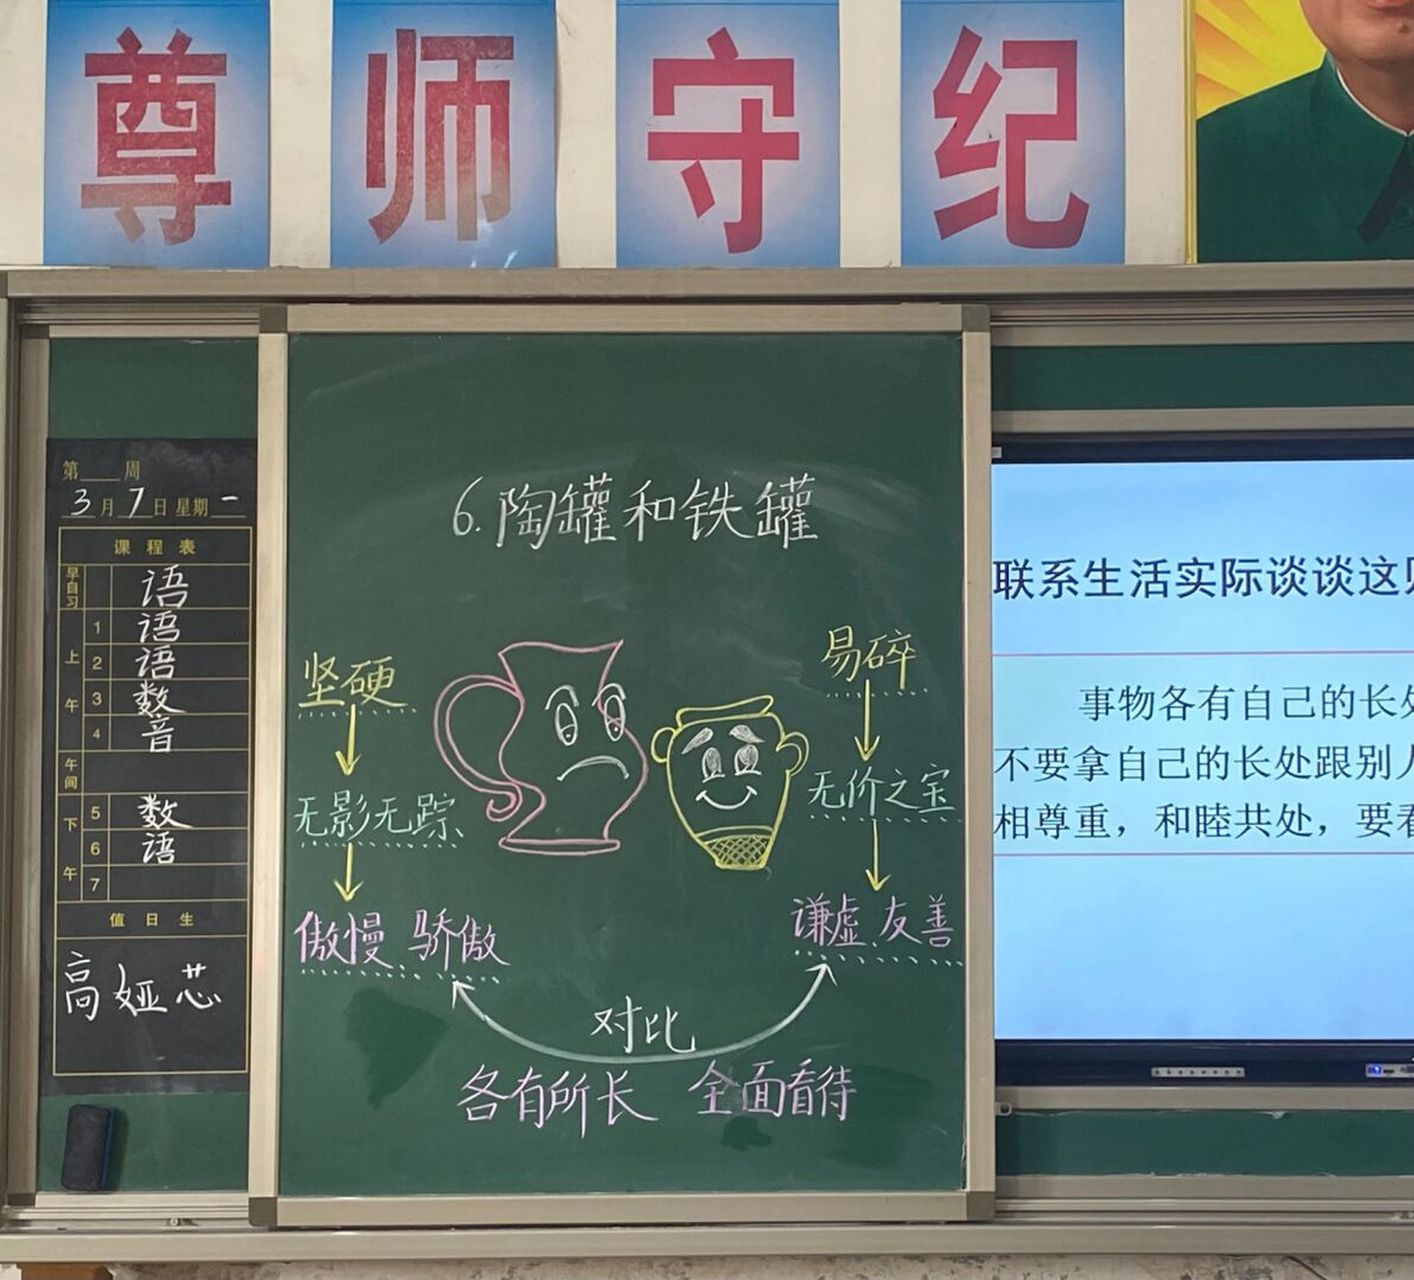 尊师守纪
第 周
3月7日星期一
课程表
早自习 语
上午
1 语
2 语
3 数
4 音
午间
下午
5 数
6 语
7
值日生
高娅芯
6.陶罐和铁罐
坚硬
无影无踪
傲慢 骄傲
易碎
无价之宝
谦虚 友善
对比
各有所长 全面看待
联系生活实际谈谈这
事物各有自己的长处
不要拿自己的长处跟别人
相尊重，和睦共处，要看